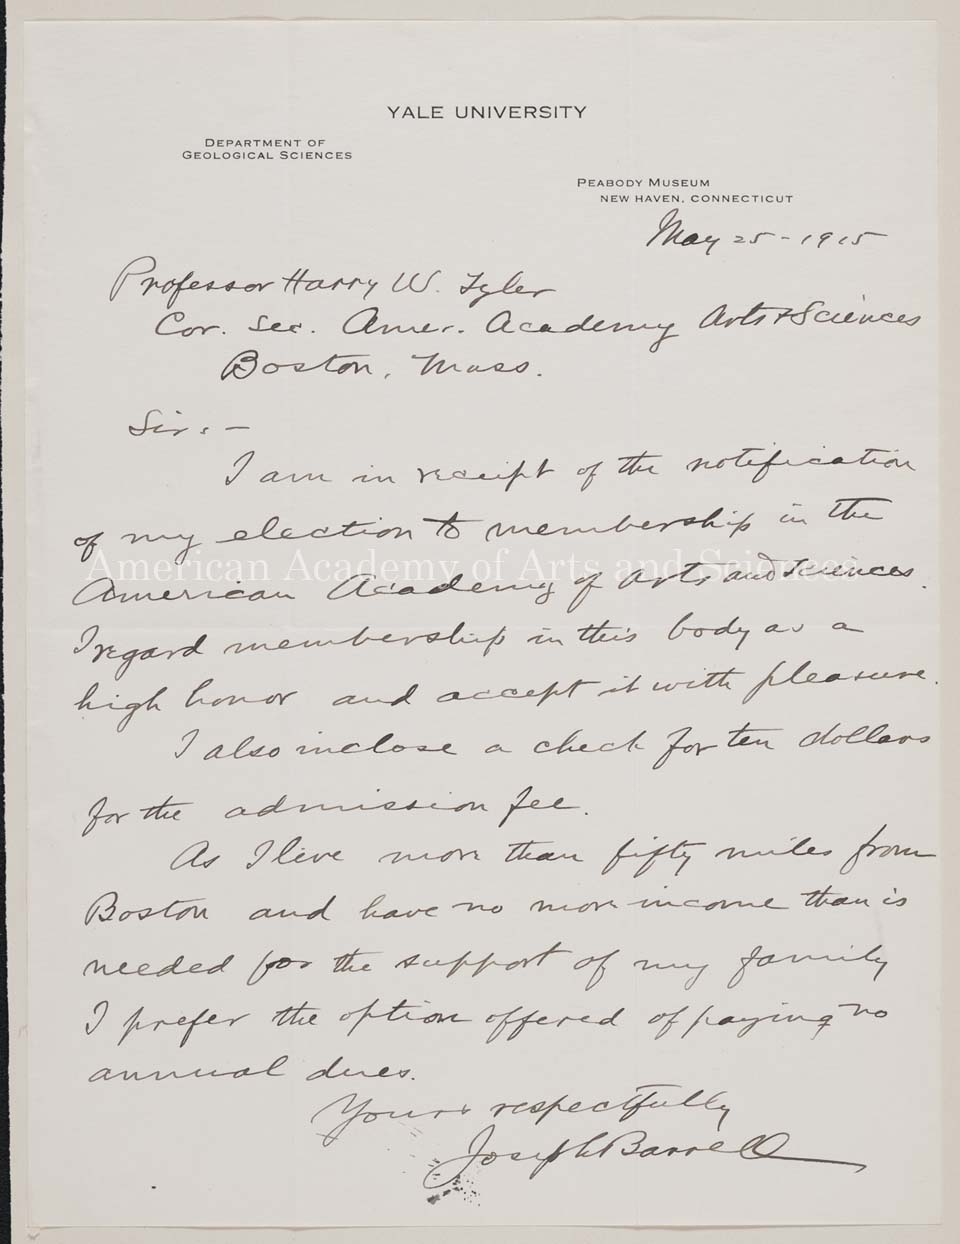 YALE UNIVERSITY
DEPARTMENT OF
GEOLOGICAL SCIENCES
PEABODY MUSEUM
NEW HAVEN, CONNECTICUT
May 25-1915
Professor Harry W. Tyler
Cor. Sec. Amer. Academy Arts & Sciences
Boston, Mass.
Sir:-
I am in receipt of the notification
of my election to membership in the
American Academy of Arts and Sciences
American Academy of Arts and Sciences.
I regard membership in this body as a
high honor and accept it with pleasure.
I also inclose a check for ten dollars
for the admission fee.
As I live more than fifty miles from
Boston and have no more income than is
needed for the support of my family
I prefer the option offered of paying no
annual dues.
Yours respectfully
Joseph Barrell